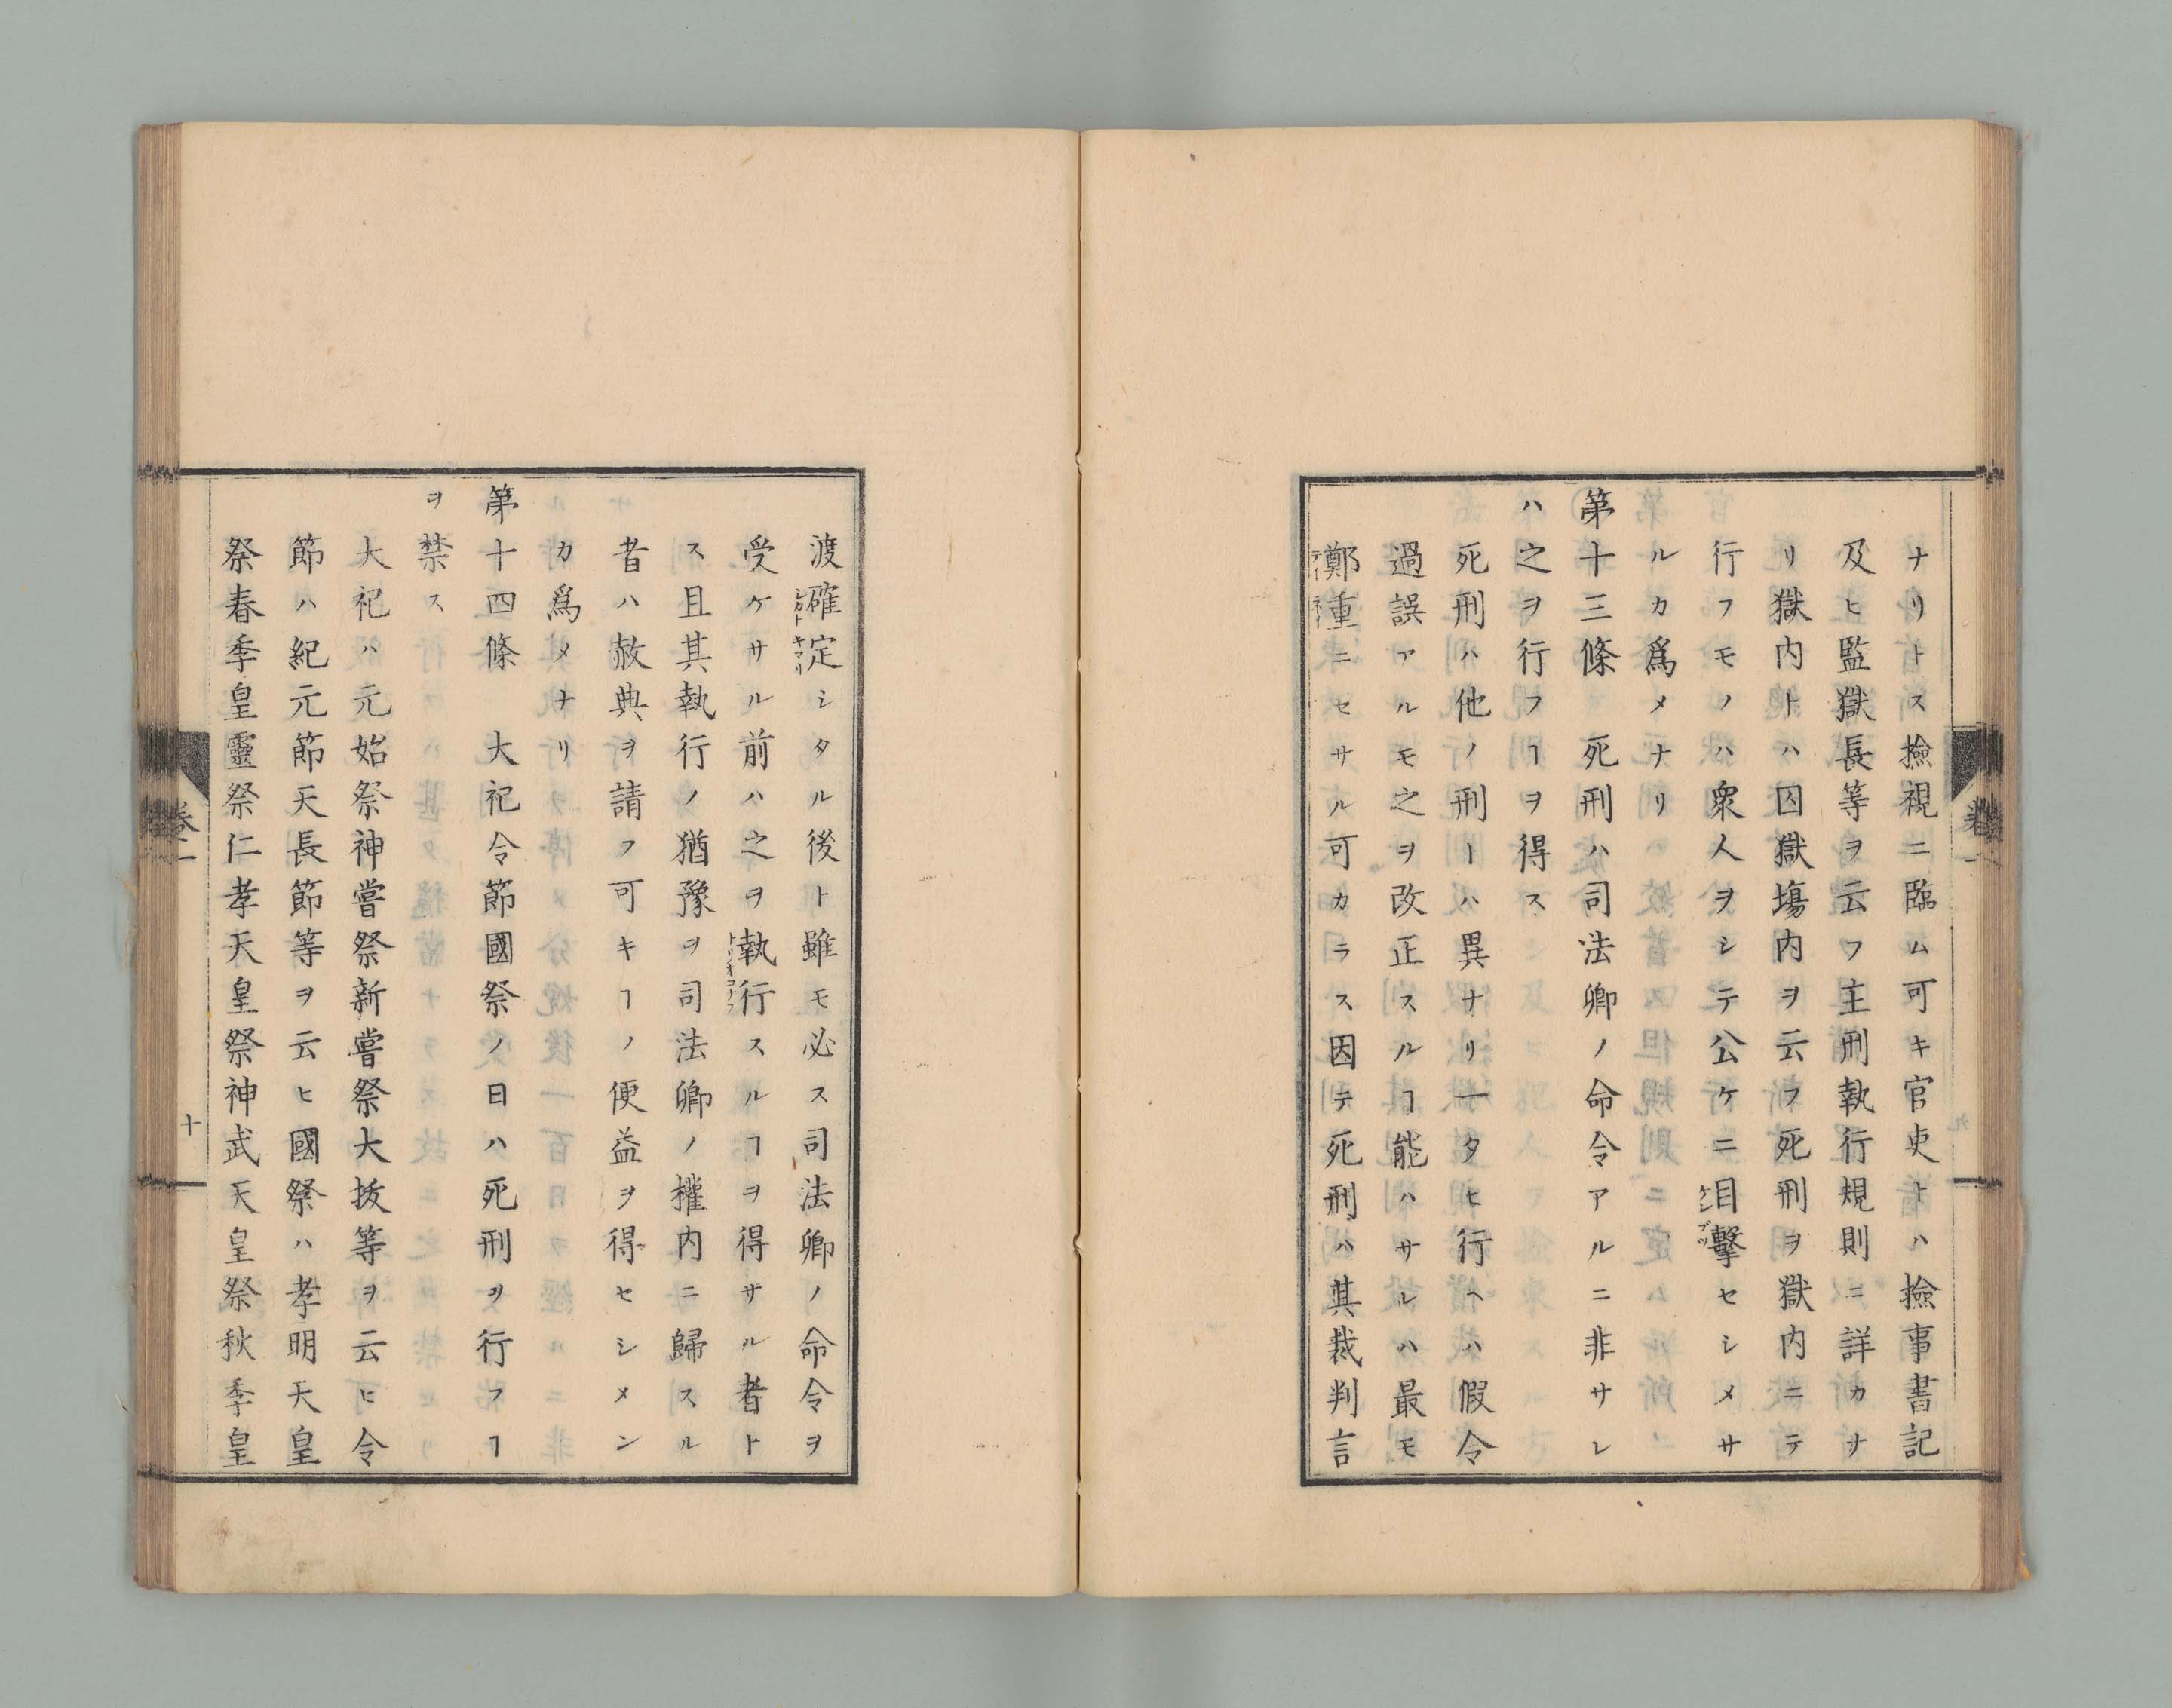 ナリトス撿視ニ臨ム可キ官吏トハ撿事書記
及ヒ監獄長等ヲ云フ主刑執行規則ニ詳カナ
リ獄内トハ囚獄塲内ヲ云フ死刑ヲ獄内ニテ
行フモノハ衆人ヲシテ公ケニ目擊セシメサ
ルカ爲メナリ
第十三條 死刑ハ司法卿ノ命令アルニ非サレ
ハ之ヲ行フヿヲ得ス
死刑ハ他ノ刑トハ異ナリ一タヒ行ヘハ假令
過誤アルモ之ヲ改正スルヿ能ハサルハ最モ
鄭重ニセサル可カラス因テ死刑ハ其裁判言
渡確定シタル後ト雖モ必ス司法卿ノ命令ヲ
受ケサル前ハ之ヲ執行スルヿヲ得サル者ト
ス且其執行ノ猶豫ヲ司法卿ノ權内ニ歸スル
者ハ赦典ヲ請フ可キヿノ便益ヲ得セシメン
カ爲メナリ
第十四條 大祀令節國祭ノ日ハ死刑ヲ行フヿ
ヲ禁ス
大祀ハ元始祭神嘗祭新嘗祭大拔等ヲ云ヒ令
節ハ紀元節天長節等ヲ云ヒ國祭ハ孝明天皇
祭春季皇靈祭仁孝天皇祭神武天皇祭秋季皇
卷一
十